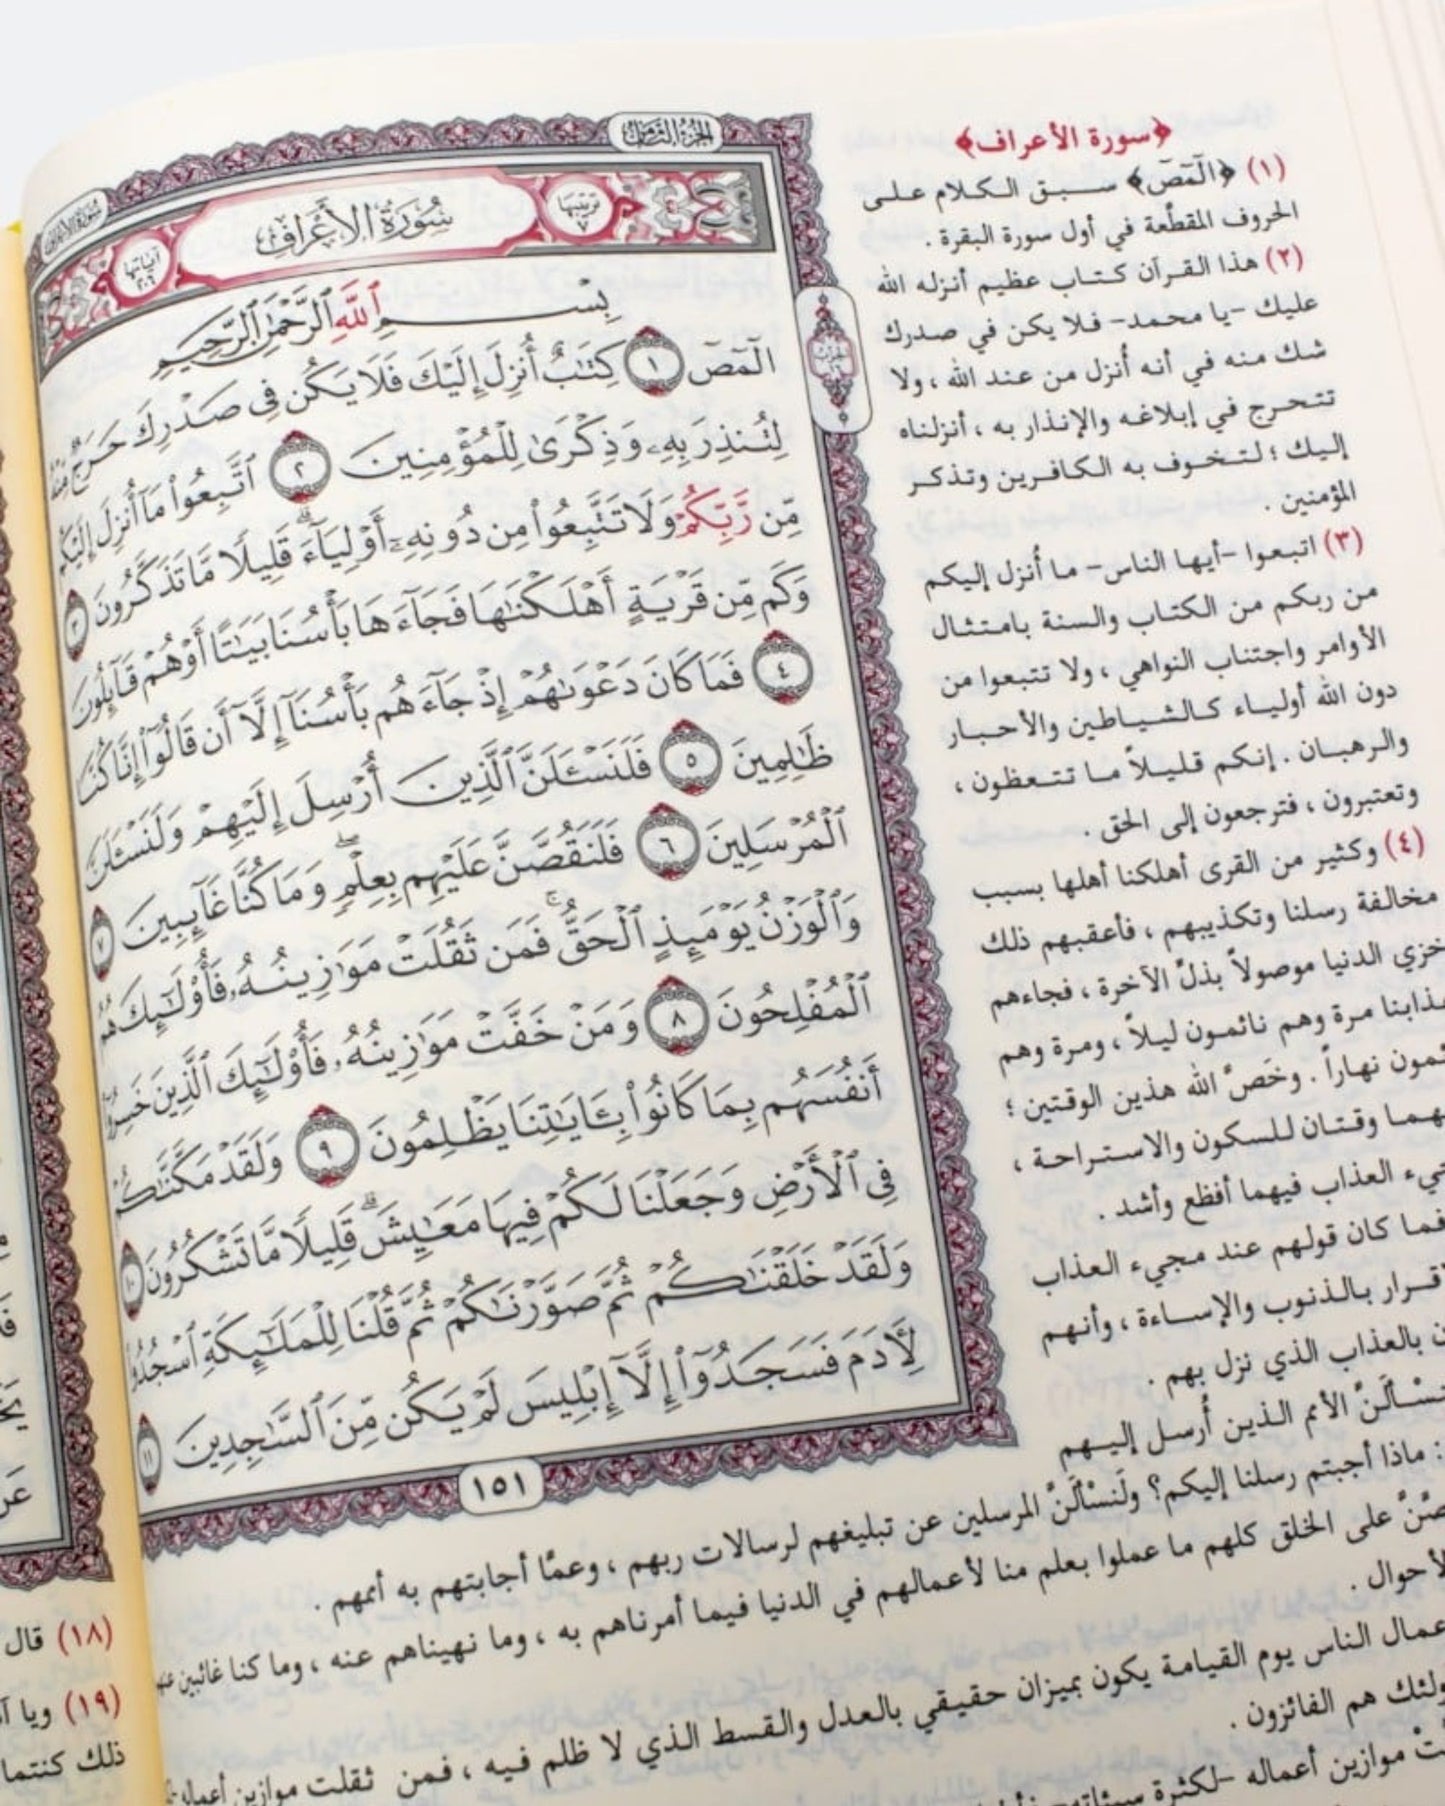 الجزء الثامن
سورة الأعراف
ترتيبها ٧
سورة الأعراف
آياتها ٢٠٦
بِسْمِ ٱللَّهِ ٱلرَّحْمَٰنِ ٱلرَّحِيمِ
الٓمٓصٓ ١ كِتَٰبٌ أُنزِلَ إِلَيْكَ فَلَا يَكُن فِى صَدْرِكَ حَرَجٌ مِّنْهُ
لِتُنذِرَ بِهِۦ وَذِكْرَىٰ لِلْمُؤْمِنِينَ ٢ ٱتَّبِعُوا۟ مَآ أُنزِلَ إِلَيْكُم
مِّن رَّبِّكُمْ وَلَا تَتَّبِعُوا۟ مِن دُونِهِۦٓ أَوْلِيَآءَ ۗ قَلِيلًا مَّا تَذَكَّرُونَ ٣
وَكَم مِّن قَرْيَةٍ أَهْلَكْنَٰهَا فَجَآءَهَا بَأْسُنَا بَيَٰتًا أَوْ هُمْ قَآئِلُونَ
٤ فَمَا كَانَ دَعْوَىٰهُمْ إِذْ جَآءَهُم بَأْسُنَآ إِلَّآ أَن قَالُوٓا۟ إِنَّا كُنَّا
ظَٰلِمِينَ ٥ فَلَنَسْـَٔلَنَّ ٱلَّذِينَ أُرْسِلَ إِلَيْهِمْ وَلَنَسْـَٔلَنَّ
ٱلْمُرْسَلِينَ ٦ فَلَنَقُصَّنَّ عَلَيْهِم بِعِلْمٍ ۖ وَمَا كُنَّا غَآئِبِينَ ٧
وَٱلْوَزْنُ يَوْمَئِذٍ ٱلْحَقُّ ۚ فَمَن ثَقُلَتْ مَوَٰزِينُهُۥ فَأُو۟لَٰٓئِكَ هُمُ
ٱلْمُفْلِحُونَ ٨ وَمَنْ خَفَّتْ مَوَٰزِينُهُۥ فَأُو۟لَٰٓئِكَ ٱلَّذِينَ خَسِرُوٓا۟
أَنفُسَهُم بِمَا كَانُوا۟ بِـَٔايَٰتِنَا يَظْلِمُونَ ٩ وَلَقَدْ مَكَّنَّٰكُمْ
فِى ٱلْأَرْضِ وَجَعَلْنَا لَكُمْ فِيهَا مَعَٰيِشَ ۗ قَلِيلًا مَّا تَشْكُرُونَ ١٠
وَلَقَدْ خَلَقْنَٰكُمْ ثُمَّ صَوَّرْنَٰكُمْ ثُمَّ قُلْنَا لِلْمَلَٰٓئِكَةِ ٱسْجُدُوا۟
لِءَادَمَ فَسَجَدُوٓا۟ إِلَّآ إِبْلِيسَ لَمْ يَكُن مِّنَ ٱلسَّٰجِدِينَ ١١
١٥١
﴿سورة الأعراف﴾
(١) ﴿الٓمٓصٓ﴾ سبق الكلام على
الحروف المقطّعة في أول سورة البقرة .
(٢) هذا القرآن كتاب عظيم أنزله الله
عليك -يا محمد- فلا يكن في صدرك
شك منه في أنه أُنزل من عند الله ، ولا
تتحرج في إبلاغه والإنذار به ، أنزلناه
إليك ؛ لتخوف به الكافرين وتذكر
المؤمنين .
(٣) اتبعوا -أيها الناس- ما أُنزل إليكم
من ربكم من الكتاب والسنة بامتثال
الأوامر واجتناب النواهي ، ولا تتبعوا من
دون الله أولياء كالشياطين والأحبار
والرهبان . إنكم قليلاً ما تتعظون ،
وتعتبرون ، فترجعون إلى الحق .
(٤) وكثير من القرى أهلكنا أهلها بسبب
مخالفة رسلنا وتكذيبهم ، فأعقبهم ذلك
خزي الدنيا موصولاً بذلّ الآخرة ، فجاءهم
مرة وهم نائمون ليلاً ، ومرة وهم
نهاراً . وخَصَّ الله هذين الوقتين ؛
وقتان للسكون والاستراحة ،
العذاب فيهما أفظع وأشد .
فما كان قولهم عند مجيء العذاب
بالذنوب والإساءة ، وأنهم
بالعذاب الذي نزل بهم .
الأمم الذين أُرسل إليهم
: ماذا أجبتم رسلنا إليكم؟ ولَنسْألَنَّ المرسلين عن تبليغهم لرسالات ربهم ، وعمَّا أجابتهم به أممهم .
على الخلق كلهم ما عملوا بعلم منا لأعمالهم في الدنيا فيما أمرناهم به ، وما نهيناهم عنه ، وما كنا غائبين
الأحوال .
الناس يوم القيامة يكون بميزان حقيقي بالعدل والقسط الذي لا ظلم فيه ، فمن ثقلت موازين أعماله
هم الفائزون .
موازين أعماله -لكثرة
(١٨) قال
(١٩) ويا
ذلك كنتما